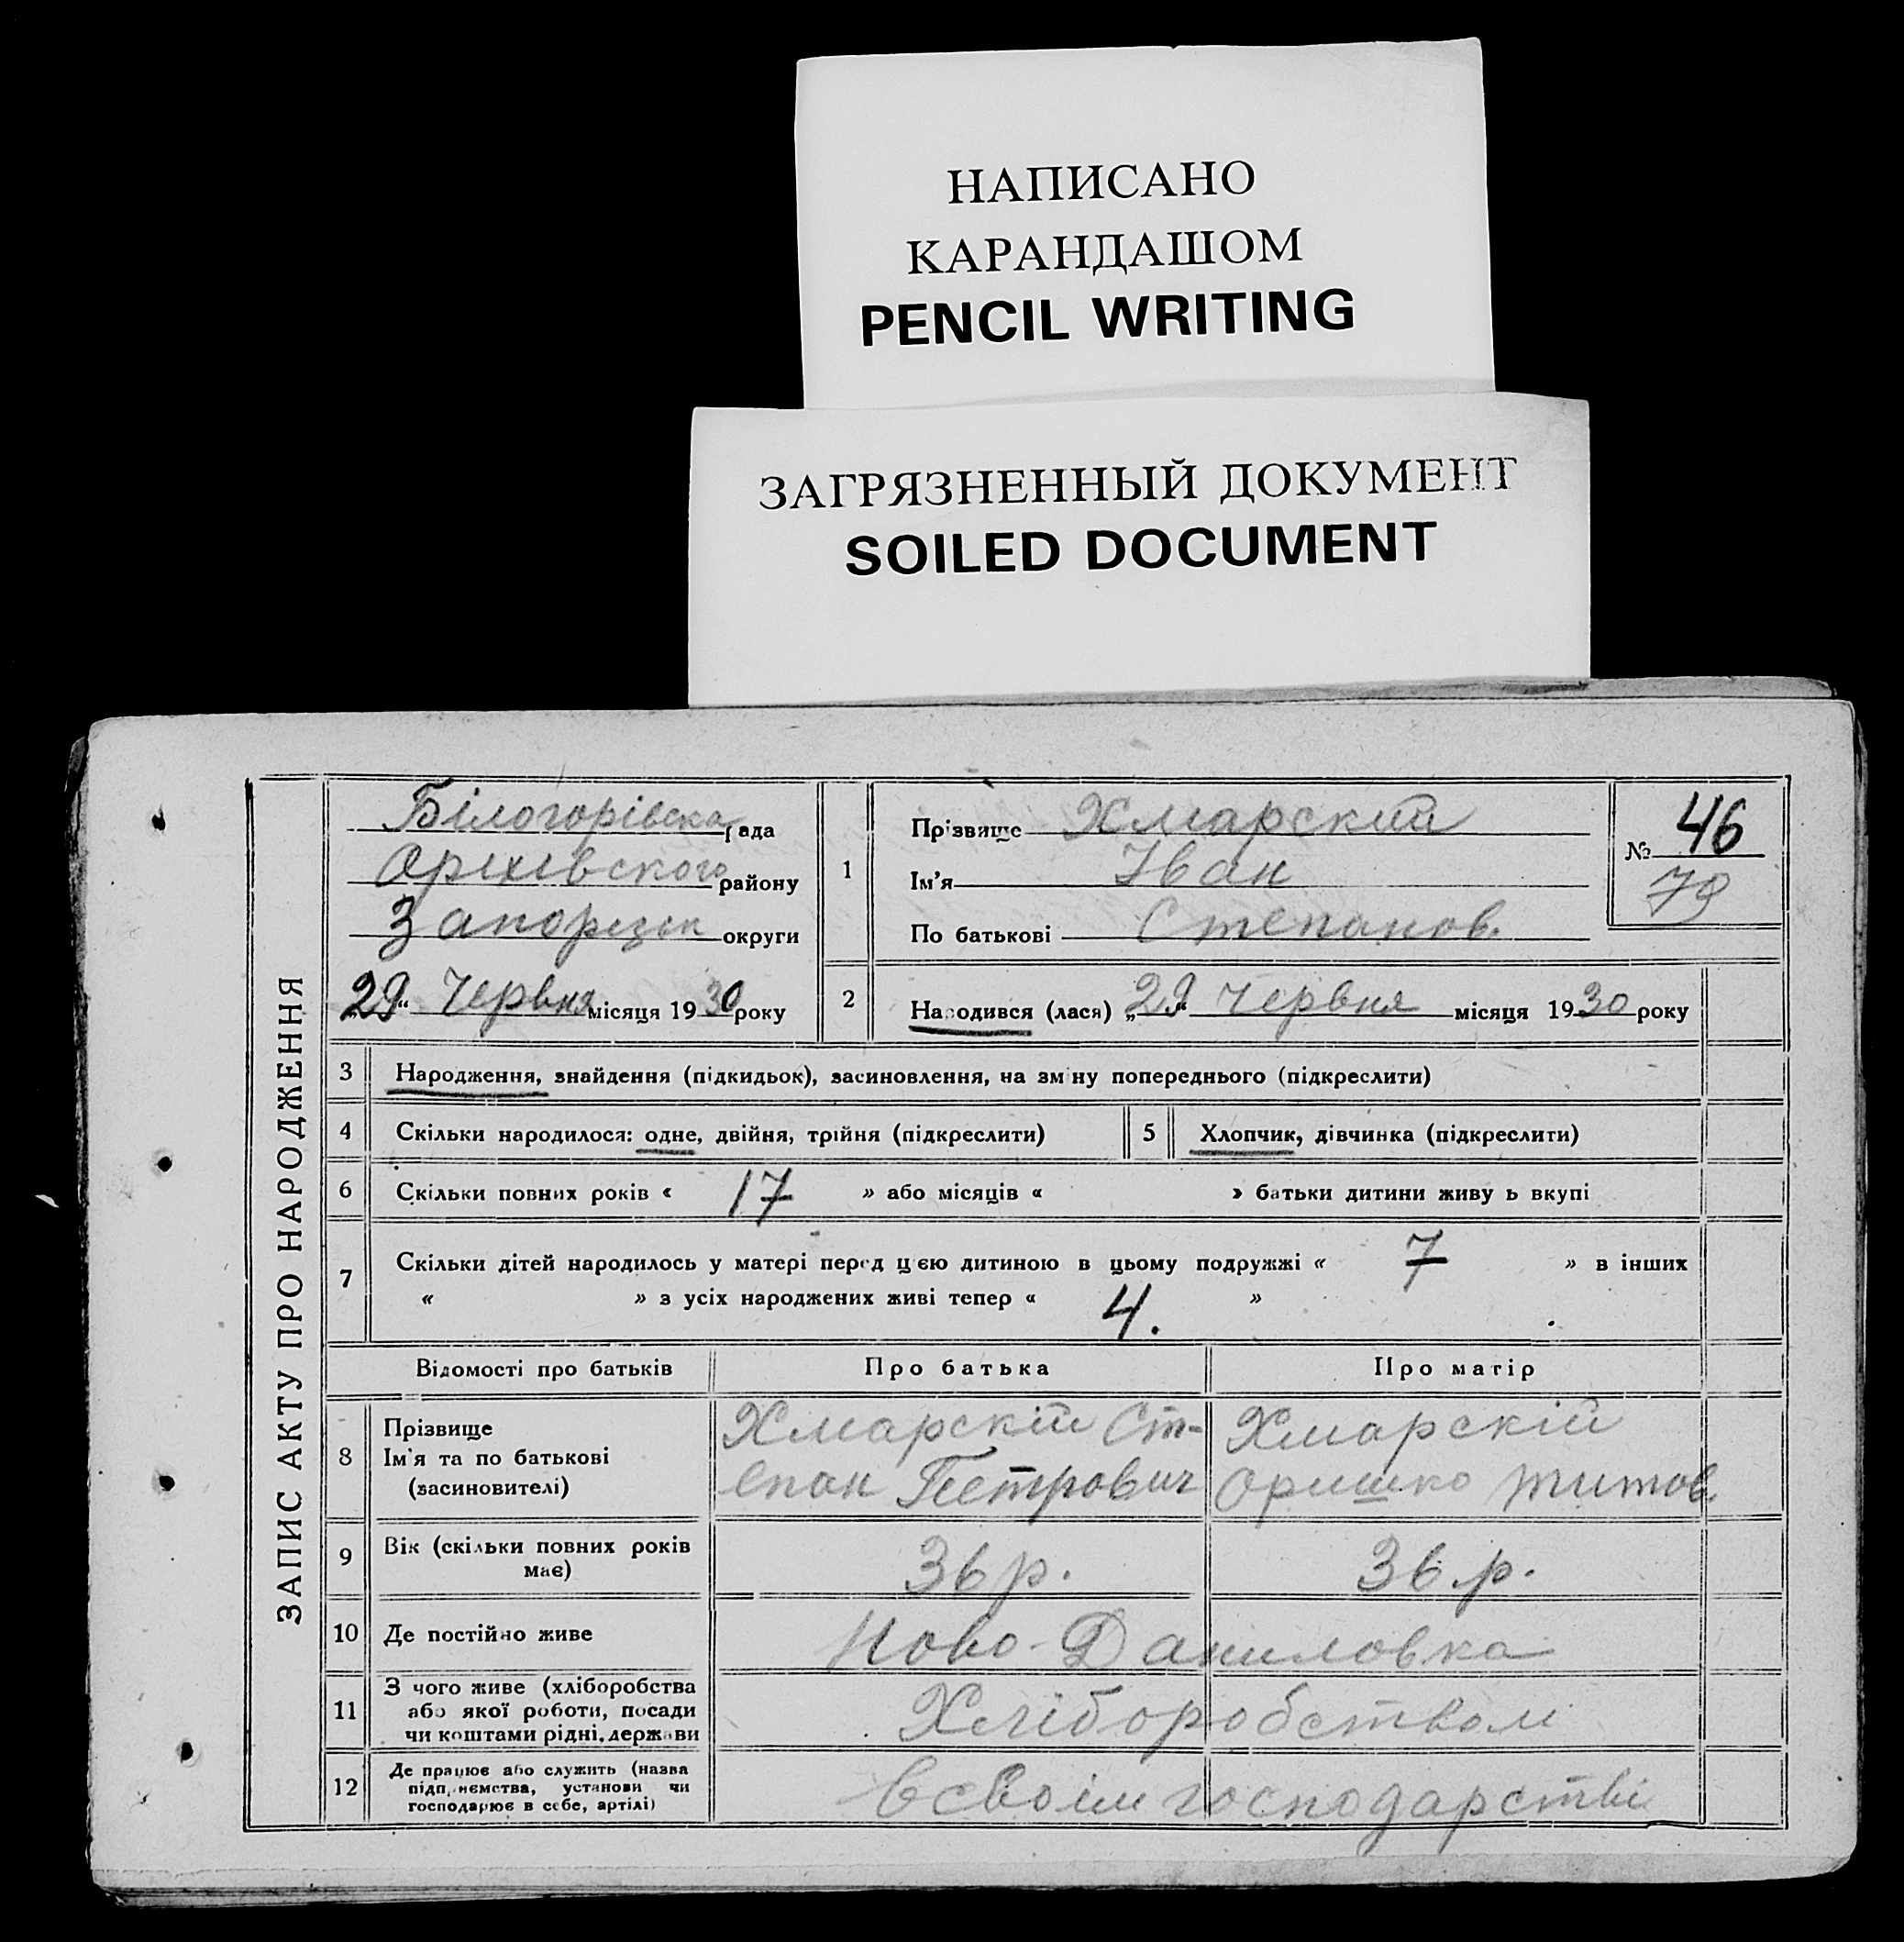 НАПИСАНО
КАРАНДАШОМ
PENCIL WRITING
ЗАГРЯЗНЕННЫЙ ДОКУМЕНТ
SOILED DOCUMENT
ЗАПИС АКТУ ПРО НАРОДЖЕННЯ
Білогорівска рада
Оріхівского району
Запорізьк округи
„29“ Червня місяця 1930 року
1
Прізвище Хмарский
Ім'я Іван
По батькові Степанов.
№ 46
79
2
Народився (лася) „29“ Червня місяця 1930 року
3 Народження, знайдення (підкидьок), засиновлення, на зміну попереднього (підкреслити)
4 Скільки народилося: одне, двійня, трійня (підкреслити)
5 Хлопчик, дівчинка (підкреслити)
6 Скільки повних років « 17 » або місяців « » батьки дитини живуть вкупі
7 Скільки дітей народилось у матері перед цією дитиною в цьому подружжі « 7 » в інших
« » з усіх народжених живі тепер « 4. »
Відомості про батьків Про батька Про матір
8 Прізвище
Ім'я та по батькові
(засиновителі)
Хмарскій Ст-
епан Петрович
Хмарскій
Оришко Титов.
9 Вік (скільки повних років
має)
36 р. 36 р.
10 Де постійно живе Ново-Даниловка
11 З чого живе (хліборобства
або якої роботи, посади
чи коштами рідні, держави
Хліборобством
12 Де працює або служить (назва
підприємства, установи чи
господарює в себе, артілі)
в своїм господарстві